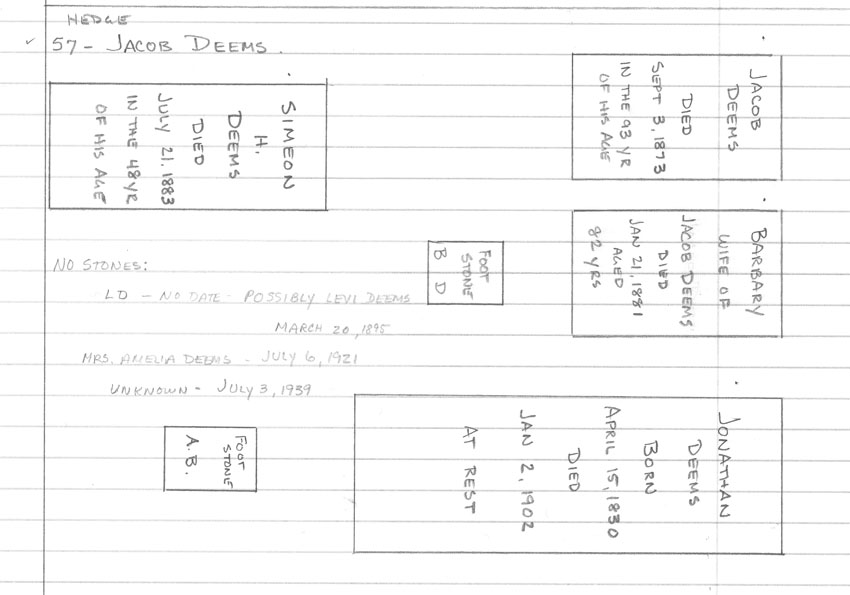 HEDGE
✓ 57 - JACOB DEEMS.
JACOB
DEEMS
DIED
SEPT 3, 1873
IN THE 93 YR
OF HIS AGE
SIMEON
H.
DEEMS
DIED
JULY 21, 1883
IN THE 48 YR
OF HIS AGE
BARBARY
WIFE OF
JACOB DEEMS
DIED
JAN 21, 1881
AGED
82 YRS
FOOT
STONE
B D
NO STONES:
LD - NO DATE - POSSIBLY LEVI DEEMS
MARCH 20, 1895
MRS. AMELIA DEEMS - JULY 6, 1921
UNKNOWN - JULY 3, 1939
JONATHAN
DEEMS
BORN
APRIL 15, 1830
DIED
JAN 2, 1902
AT REST
FOOT
STONE
A.B.